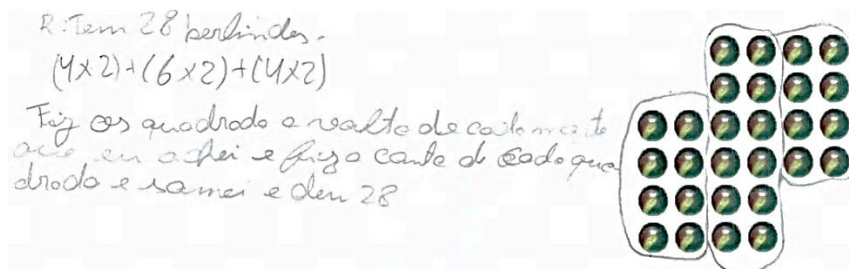 R: Tem 28 berlindes.
(4x2)+(6x2)+(4x2)
Fiz os quadrado a volta de cada
que eu achei e fiz a conta de cada qua
drado e somei e deu 28